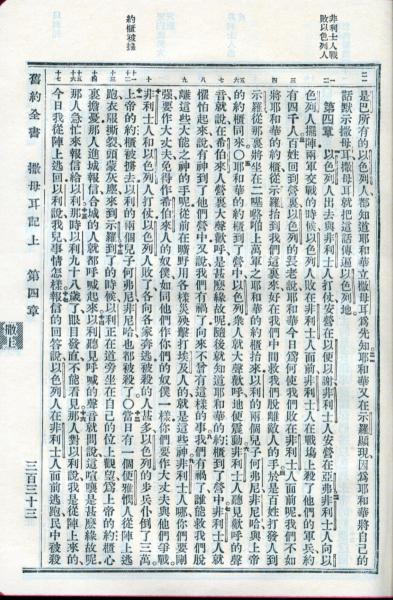 非利士人戰
敗以色列人
約櫃被擄
是巴所有的以色列人、都知道耶和華立撒母耳爲先知耶和華又在示羅顯現、因爲耶和華將自己的
話默示撒母耳撒母耳就把這話傳遍以色列地
第四章 以色列人出去與非利士人打仗安營在以便以謝非利士人安營在亞弗非利士人向以
色列人擺陣兩軍交戰的時候以色列人敗在非利士人面前非利士人在戰塲上殺了他們的軍兵約
有四千人百姓回到營裏以色列的長老說耶和華今日爲何使我們敗在非利士人面前呢我們不如
將耶和華的約櫃從示羅抬到我們這裏來好在我們中間救我們脫離敵人的手於是百姓打發人到
示羅從那裏將坐在二上萬軍之耶和華的約櫃抬來以利的兩個兒子何弗尼非尼哈與上帝
的約櫃同來○耶和華的約櫃到了營中以色列衆人就大聲歡呼地便震動非利士人聽見歡呼的聲
音就說在希伯來人營裏大聲歡呼是甚麽緣故呢隨後就知道耶和華的約櫃到了營中非利士人就
懼怕起來說有神到了他們營中又說我們有禍了向來不曾有這樣的事我們有禍了誰能救我們脫
離這些大能之神的手呢從前在曠野用各樣災殃擊打埃及人的就是這些神非利士人哪你們要剛
強要作大丈夫免得作希伯來人的奴僕如同他們作你們的奴僕一樣你們要作大丈夫與他們爭戰
非利士人和以色列人打仗以色列人敗了各向各家奔逃被殺的人甚多以色列的步兵仆倒了三萬
上帝的約櫃被擄去以利的兩個兒子何弗尼非尼哈也都被殺了○當日有一個便雅憫人從陣上逃
跑衣服撕裂頭蒙灰塵來到示羅到了的時候以利正在道旁坐在自己的位上觀望爲上帝的約櫃心
裏擔憂那人進城報信合城的人就都呼喊起來以利聽見呼喊的聲音就問說這喧嚷是甚麽緣故呢
那人急忙來報信給以利那時以利九十八歲了眼目發直不能看見那人對以利說我是從陣上來的
今日我從陣上逃回以利說我兒事情怎樣報信的回答說以色列人在非利士人面前逃跑民中被殺
舊約全書 撒母耳記上 第四章 三百三十三
撒上